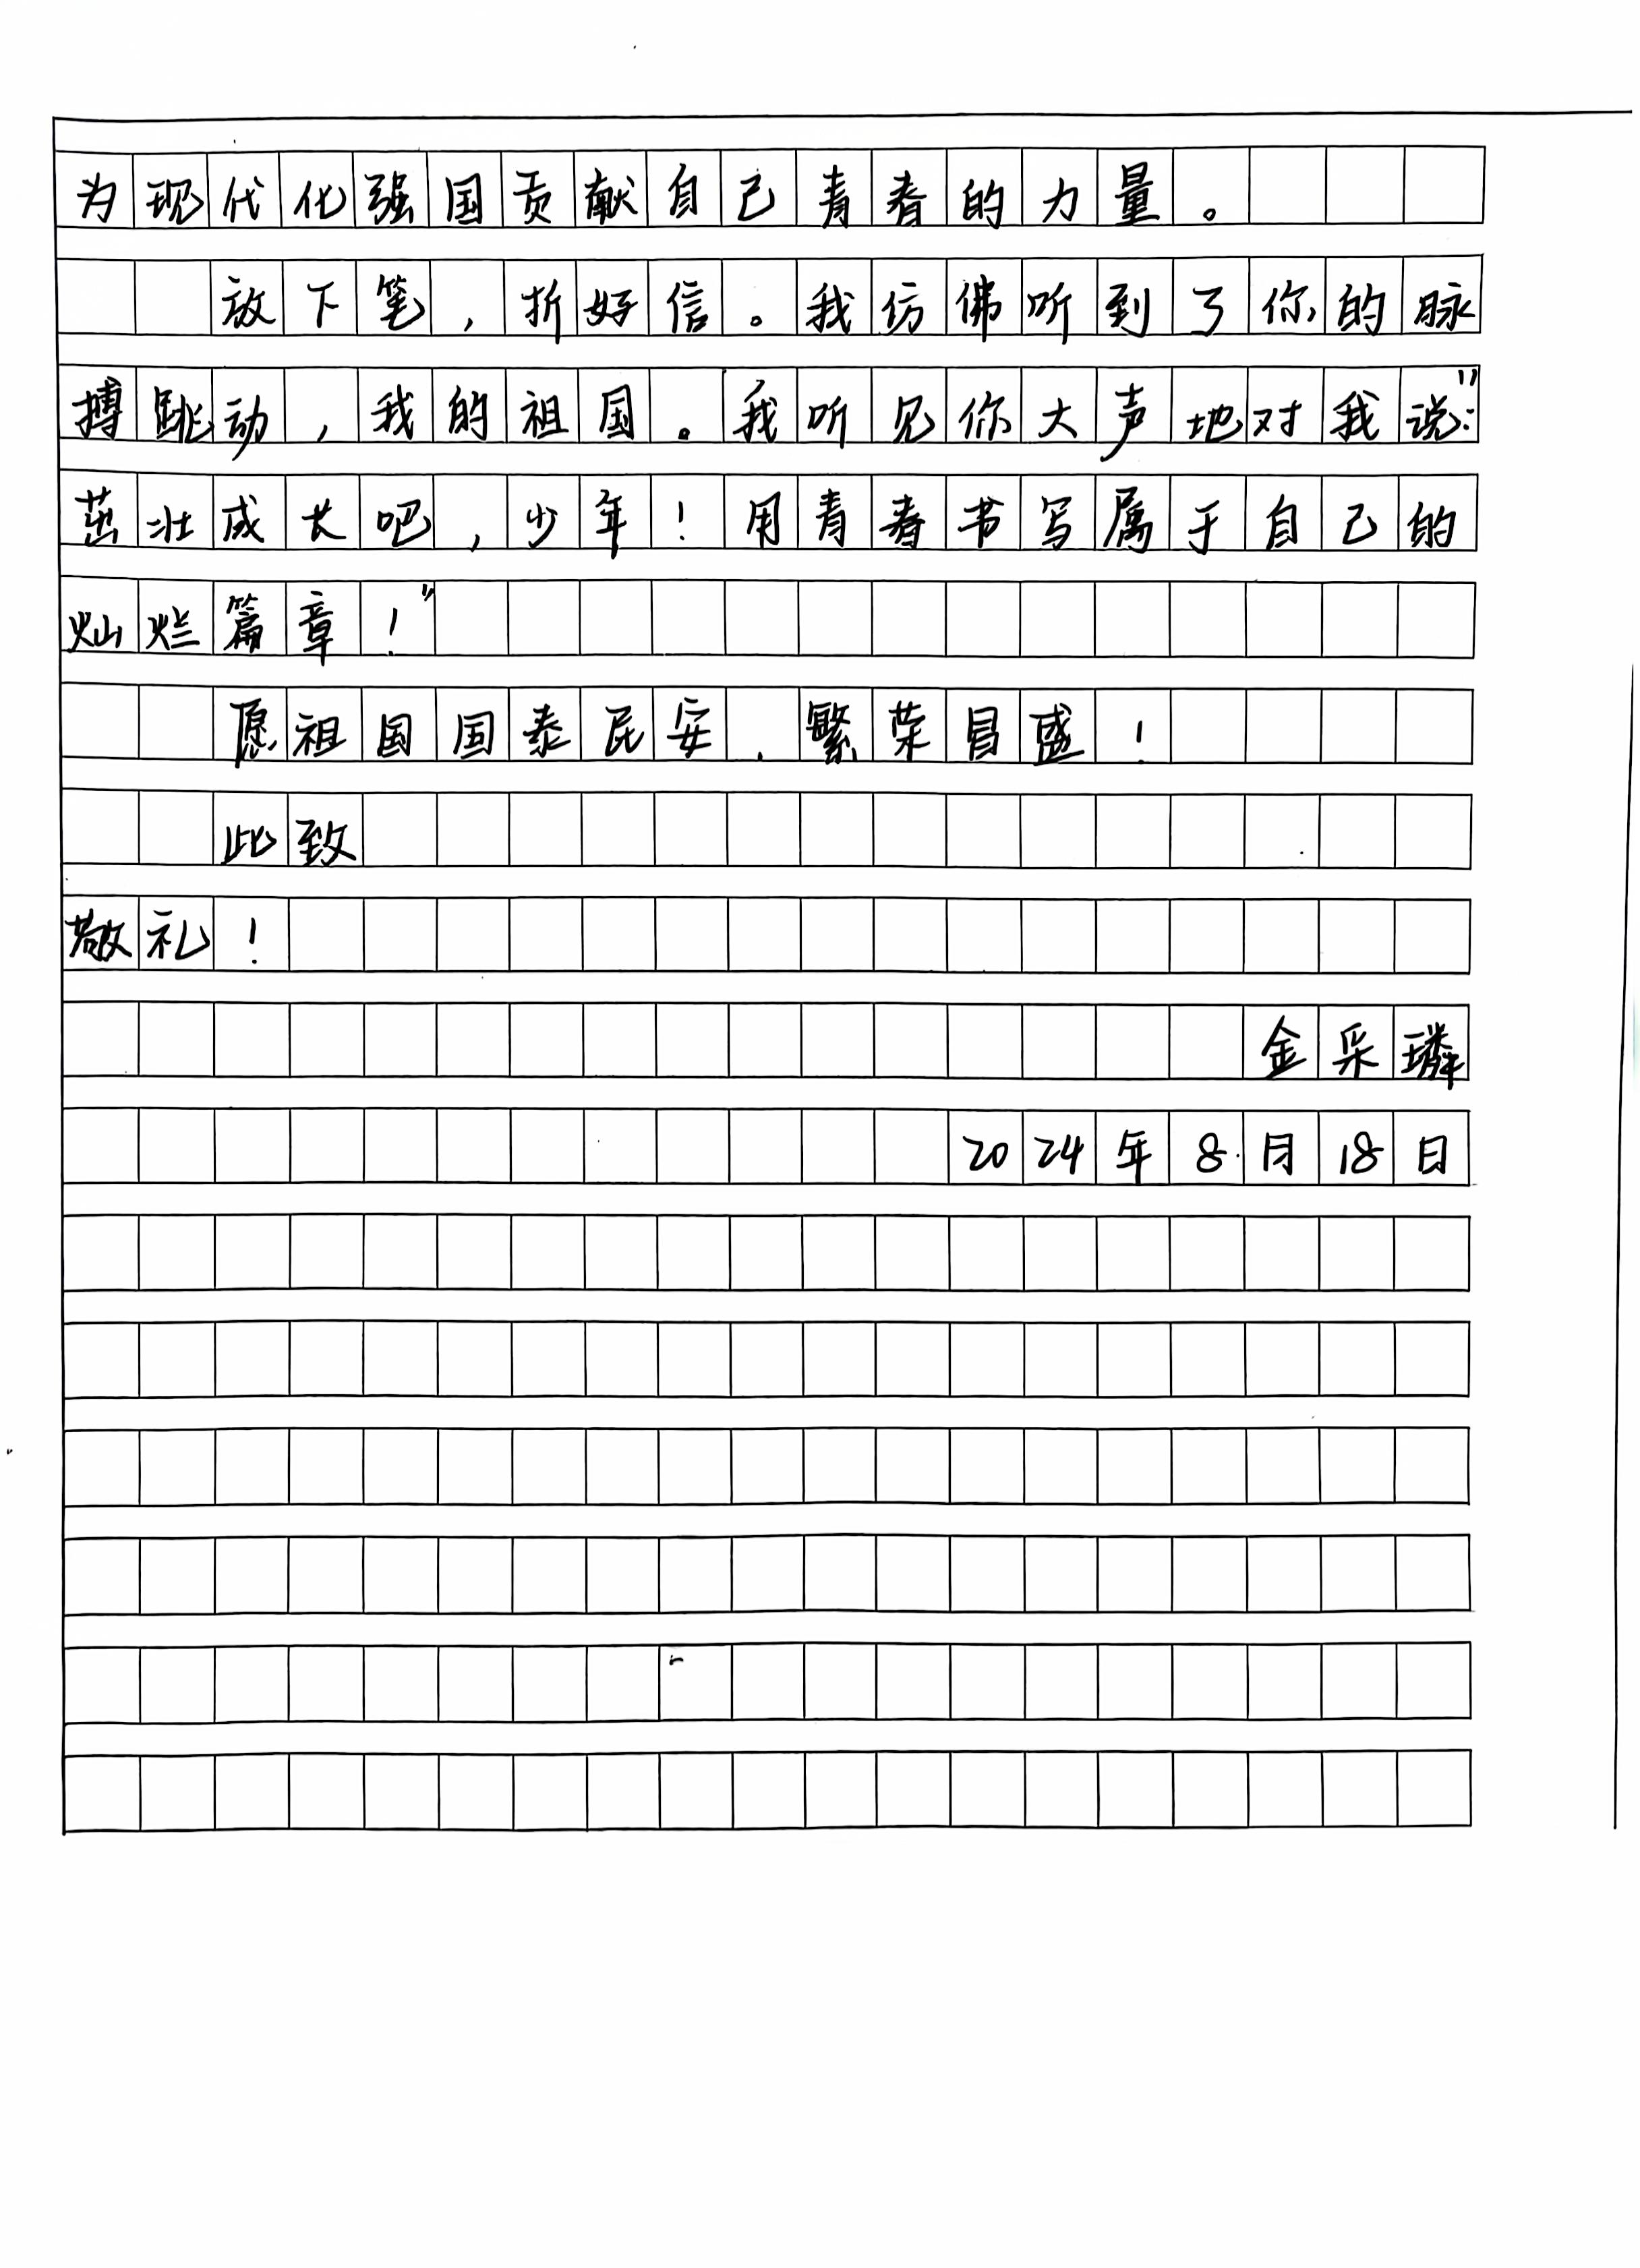 为现代化强国贡献自己青春的力量。
放下笔，折好信。我仿佛听到了你的脉
搏跳动，我的祖国。我听见你大声地对我说：“
茁壮成长吧，少年！用青春书写属于自己的
灿烂篇章！”
愿祖国国泰民安，繁荣昌盛！
此致
敬礼！
金采璘
2024年8月18日